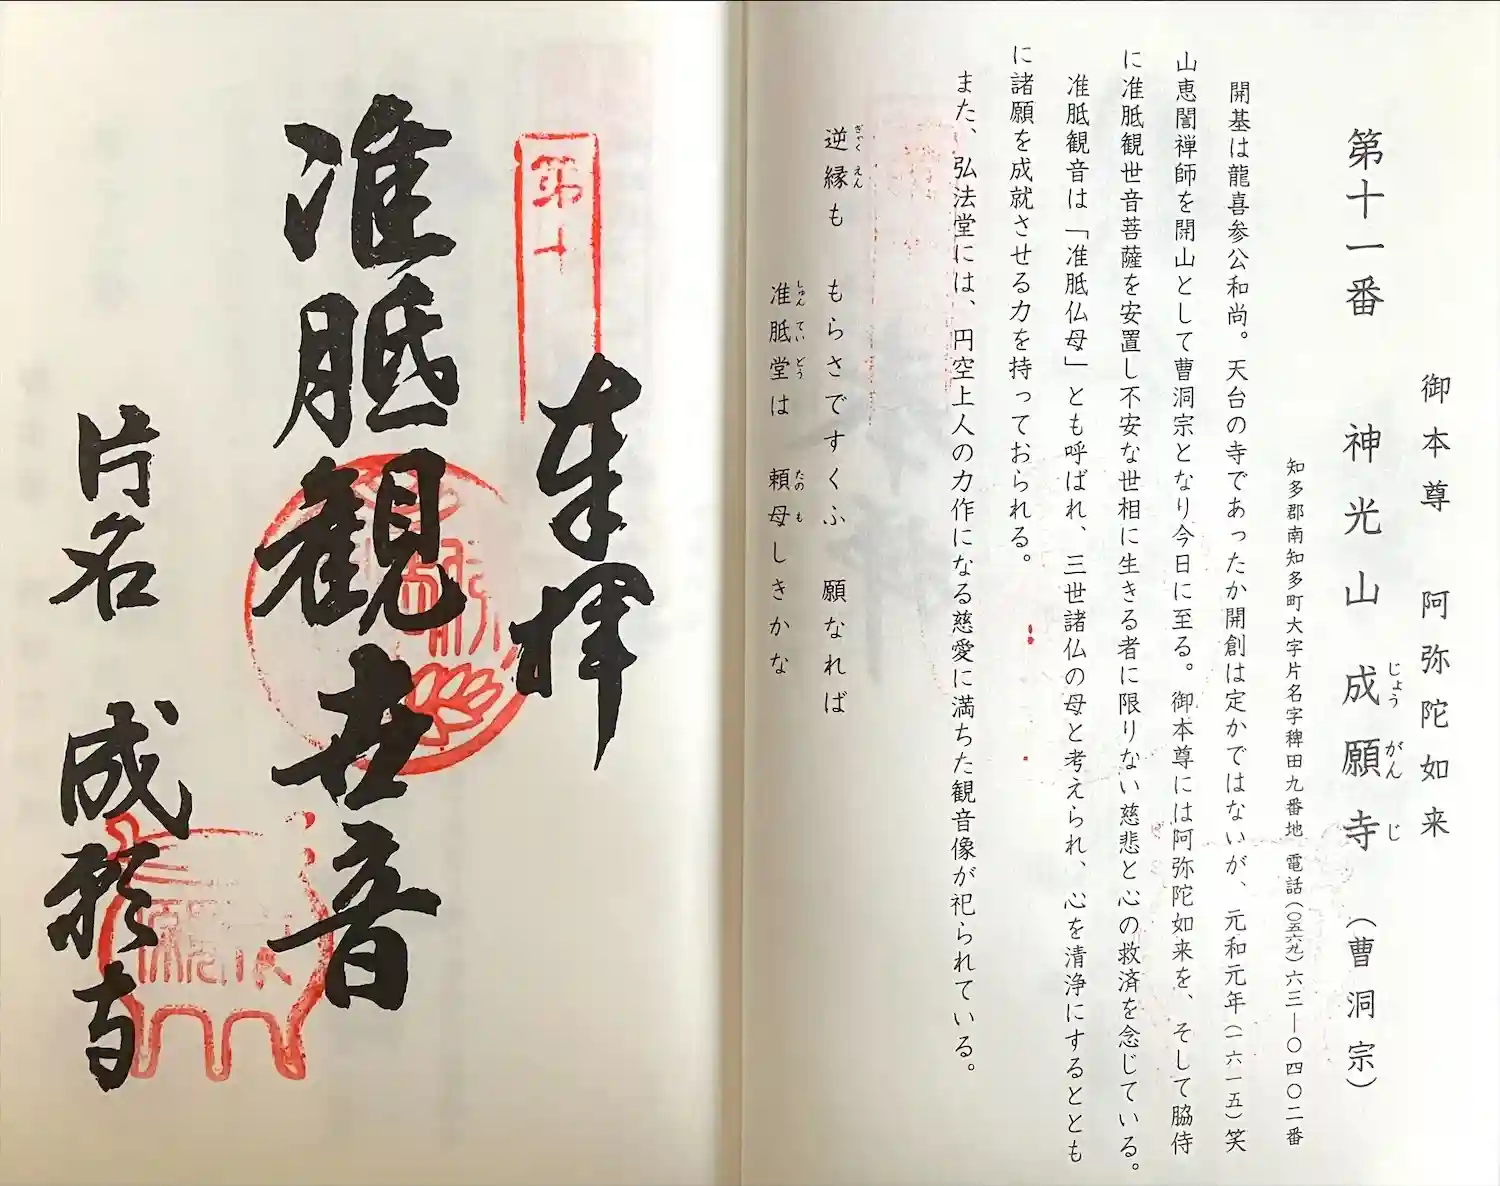 御本尊　阿弥陀如来
第十一番　神光山成願寺（曹洞宗）
じょうがんじ
知多郡南知多町大字片名字稗田九番地　電話（〇五六九）六三―〇四〇二番
開基は龍喜参公和尚。天台の寺であったか開創は定かではないが、元和元年（一六一五）笑
山恵誾禅師を開山として曹洞宗となり今日に至る。御本尊には阿弥陀如来を、そして脇侍
に准胝観世音菩薩を安置し不安な世相に生きる者に限りない慈悲と心の救済を念じている。
准胝観音は「准胝仏母」とも呼ばれ、三世諸仏の母と考えられ、心を清浄にするととも
に諸願を成就させる力を持っておられる。
また、弘法堂には、円空上人の力作になる慈愛に満ちた観音像が祀られている。
ぎゃくえん
逆縁も　もらさですくふ　願なれば
しゅんていどう　たのも
准胝堂は　頼母しきかな
第十
奉拝
准胝観世音
片名　成願寺